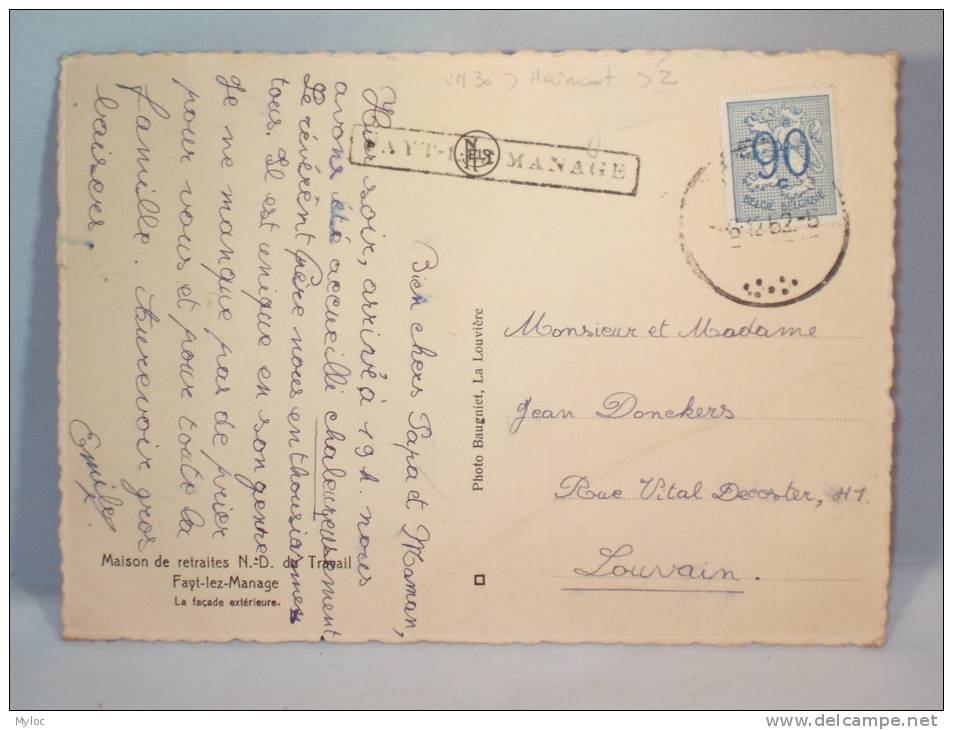 VM 30 > Hainaut > Z
Bien chers Papa et Maman,
Hier soir, arrivé à 19 h. nous
avons été accueilli chaleureusement
Le révérent Père nous enthousiasmes
tous. Il est unique en son genre
Je ne manque pas de prier
pour vous et pour toute la
famille. Aurevoir gros
baises.
Emile
FAYT-L MANAGE
NELS
90
BELGIE BELGIQUE
12 52
Photo Baugniet, La Louvière
Monsieur et Madame
Jean Donckers
Rue Vital Decoster, 41.
Louvain.
Maison de retraites N.-D. du Travail
Fayt-lez-Manage
La façade extérieure.
Myloc
delcampe.net